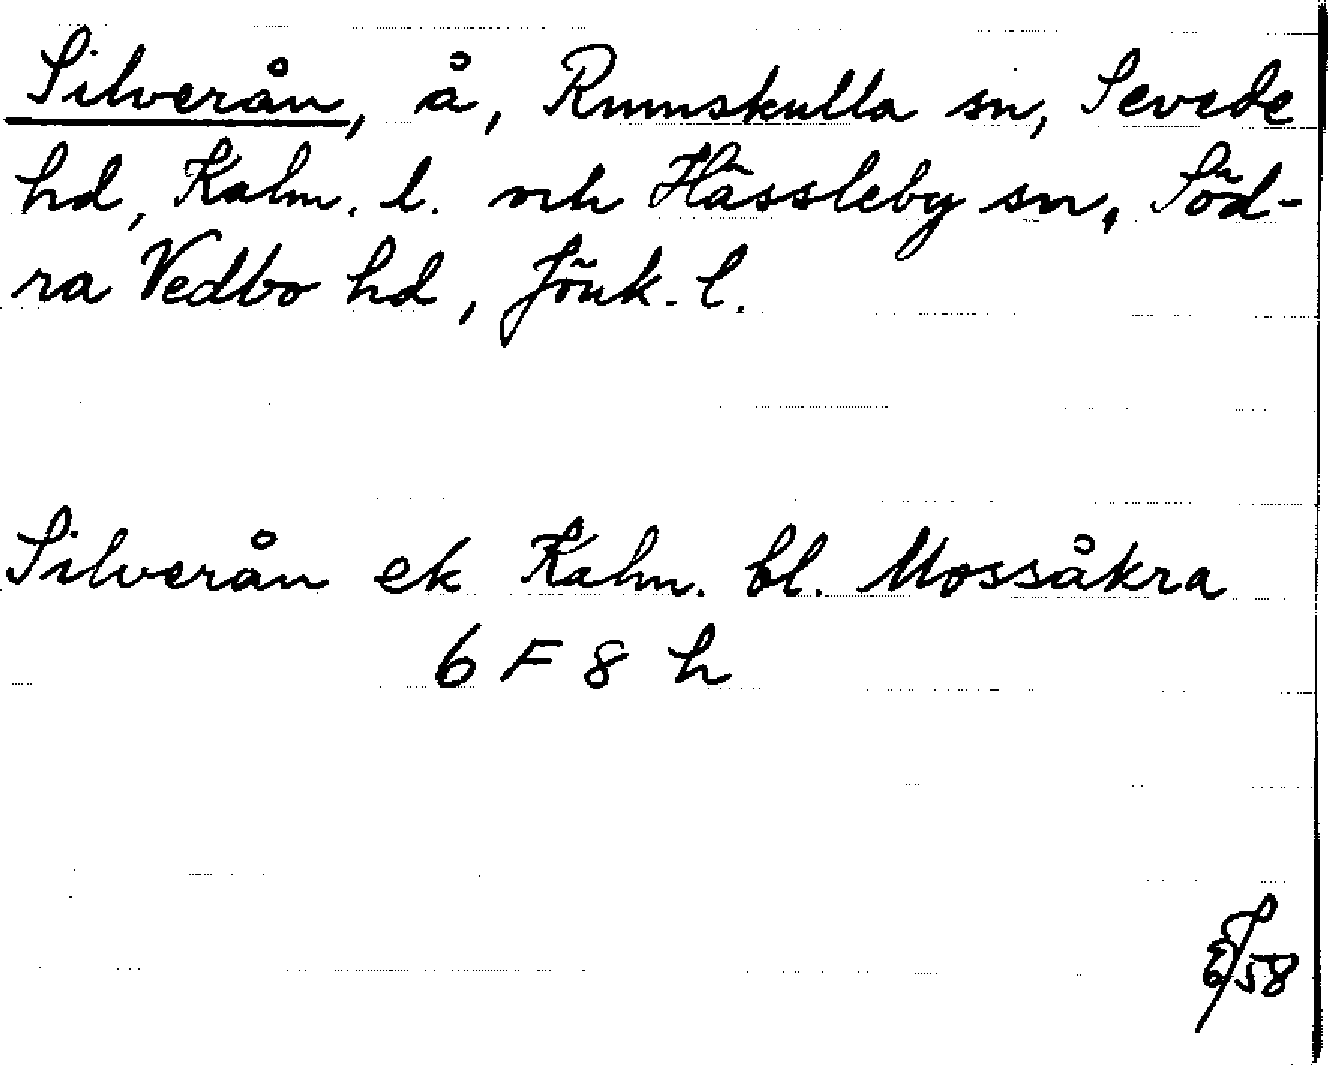 Silverån, å, Rumskulla sn, Sevede
hd, Kalm. l. och Hässleby sn, Söd-
ra Vedbo hd, Jönk. l.
Silverån ek Kalm. bl. Mossåkra
6 F 8 h
58